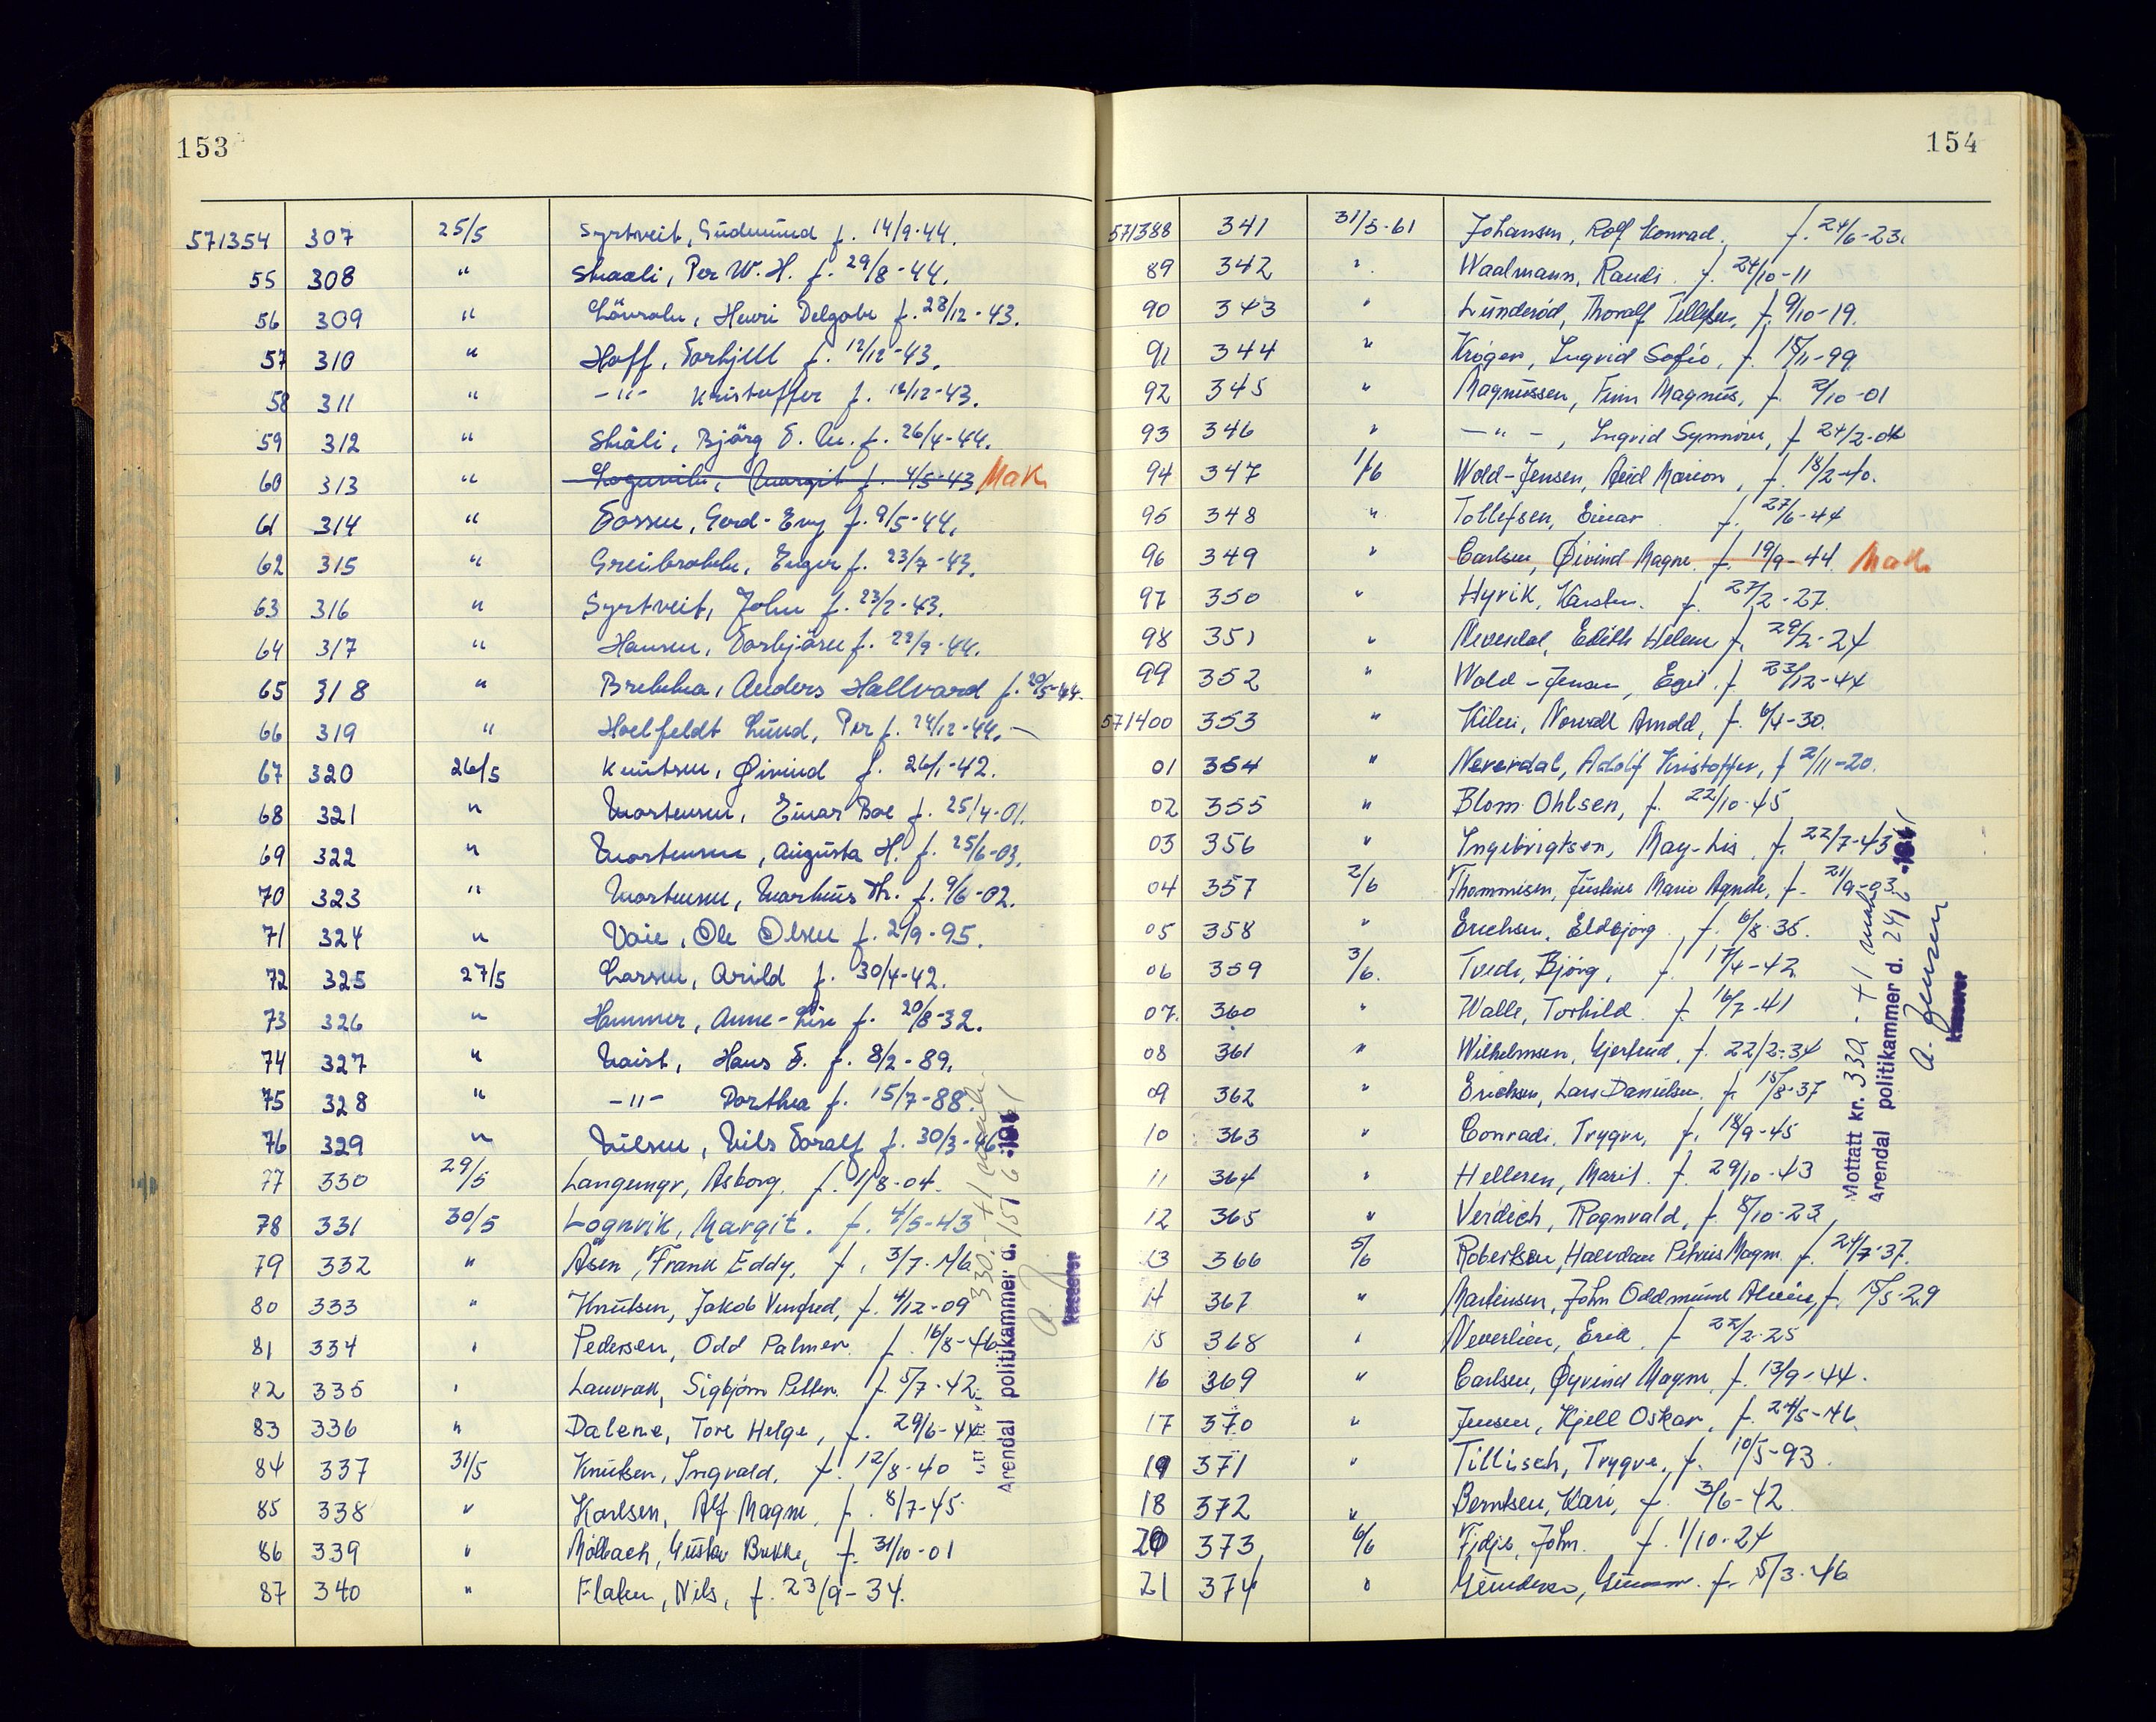 153
571354 307 25/5 Syrtveit, Gudmund f. 14/9-44.
55 308 " Skaali, Per W. H. f. 29/8-44.
56 309 " Henri f. 28/12-43.
57 310 " Hoff, Torkjell f. 12/12-43.
58 311 " -"- Kristoffer f. 12/12-43.
59 312 " Skåli, Bjørg f. 26/4-44.
60 313 " Lognvik, Margit f. 4/5-43 Mak
61 314 " Gerd-Eny f. 9/5-44.
62 315 " Greibrokk, Inger f. 23/7-43.
63 316 " Syrtveit, John f. 23/2-43.
64 317 " Hansen, Torbjørn f. 22/9-44.
65 318 " Brekka, Anders Hallvard f. 20/5-44.
66 319 " Hoelfeldt Lund, Per f. 24/12-44.
67 320 26/5 Knutsen, Øivind f. 26/1-42.
68 321 " Mortensen, Einar Boe f. 25/4-01.
69 322 " Mortensen, Augusta H. f. 25/6-03.
70 323 " Mortensen, Markus Th. f. 9/6-02.
71 324 " Vaie, Ole Olsen f. 2/9-95.
72 325 27/5 Larsen, Arild f. 30/4-42.
73 326 " Hammer, Anne-Lise f. 20/8-32.
74 327 " Hans f. 8/2-89.
75 328 " -"- Dorthea f. 15/7-88.
76 329 " Nilsen, Nils Toralf f. 30/3-46
77 330 29/5 Langemyr, Asborg. f. 1/8-04.
78 331 30/5 Lognvik, Margit. f. 4/5-43
79 332 " Åsen, Frank Eddy, f. 3/7-46
80 333 " Knutsen, Jakob f. 4/12-09
81 334 " Pedersen, Odd Palmer. f. 16/8-46
82 335 " Lauvrak, Sigbjørn Petter. f. 5/7-42
83 336 " Dalene, Tore Helge, f. 29/6-44
84 337 31/5 Knutsen, Ingvald, f. 12/8-40
85 338 " Karlsen, Alf Magne, f. 8/7-45
86 339 " Mølbach, Gustav Brekke, f. 31/10-01
87 340 " Flaten, Nils, f. 23/9-34.
330.- +1 mak.
Arendal politikammer d. 15/6 1961
Kasserer
154
571388 341 31/5-61 Johansen, Rolf Konrad. f. 24/6-23.
89 342 " Waalmann, Randi. f. 24/10-11
90 343 " Lunderød, Thoralf Tellefsen, f. 9/10-19.
91 344 " Krøger, Ingrid Sofie, f. 15/11-99.
92 345 " Magnussen, Finn Magnus, f. 2/10-01
93 346 " -"-, Ingrid Synnøve, f. 24/2-04
94 347 1/6 Wold-Jensen, Marion, f. 18/2-40.
95 348 " Tollefsen, Einar f. 27/6-44
96 349 " Carlsen, Øivind Magne f. 19/9-44. Mak
97 350 " Hyvik, Karsten. f. 27/2-27.
98 351 " Neverdal, Edith Helene f. 29/2-24
99 352 " Wold-Jensen, Egil. f. 23/12-44
571400 353 " Kilen, Norvald Arnold, f. 6/4-30.
01 354 " Neverdal, Adolf Kristoffer, f. 2/11-20.
02 355 " Blom Ohlsen, f. 22/10-45
03 356 " Ingebrigtsen, May-Lis. f. 22/7-43
04 357 2/6 Thommisen, Justine Marie Agnete, f. 21/9-03
05 358 " Erichsen, Eldbjørg, f. 6/8-36.
06 359 3/6. Tvede, Bjørg, f. 17/4-42
07. 360 " Walle, Torhild f. 16/7-41
08 361 " Wilhelmsen, Gjertrud, f. 22/2-34
09 362 " Erichsen, Lars Danielsen. f. 15/8-37
10 363 " Conradi, Trygve, f. 18/9-45
11 364 " Helleren, Marit. f. 29/10-43
12 365 " Verdich, Ragnvald, f. 8/10-23,
13 366 5/6 Robertsen, Halvdan Petrius Magn. f. 24/7-37.
14 367 " Martinsen, John Oddmund f. 15/5-29
15 368 " Neverlien, Erik. f. 22/2-25
16 369 " Carlsen, Øyvind Magne, f. 13/9-44.
17 370 " Jensen, Kjell Oskar, f. 24/5-46.
19 371 " Tillisch, Trygve, f. 10/5-93.
18 372 " Berntsen, Kari, f. 3/6-42.
20 373 6/6 Fidje, John. f. 1/10-24
21 374 " f. 5/3-46
Mottatt kr. 330.- +1 mak
Arendal politikammer d. 24/6 1961
A. Jensen
Kasserer